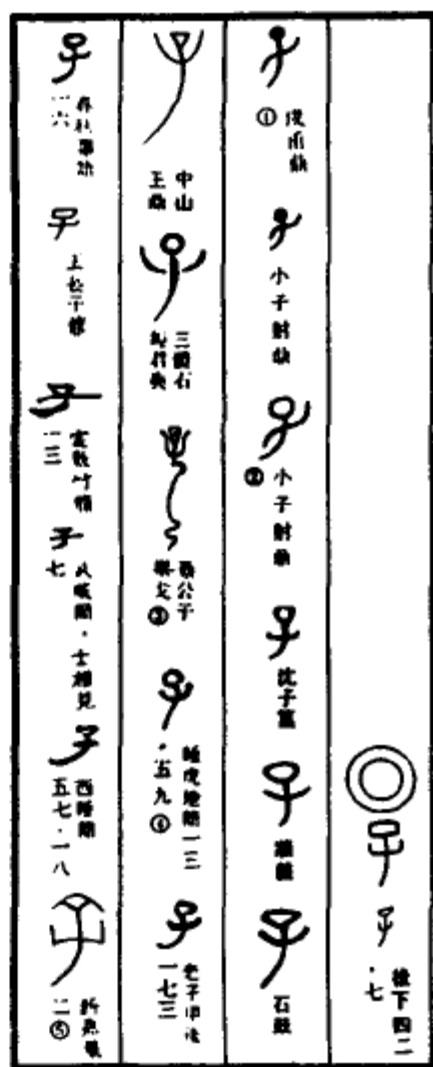 後下四二・七
①
小子射鼎
②小子射鼎
沈子簋
石鼓
中山王鼎
三體石經君奭
蔡公子果戈③
睡虎地簡一三・五九④
老子甲後一七三
春秋事語一六
定縣竹簡一三
武威簡・士相見七
西陲簡五七・一八
新嘉量二⑤